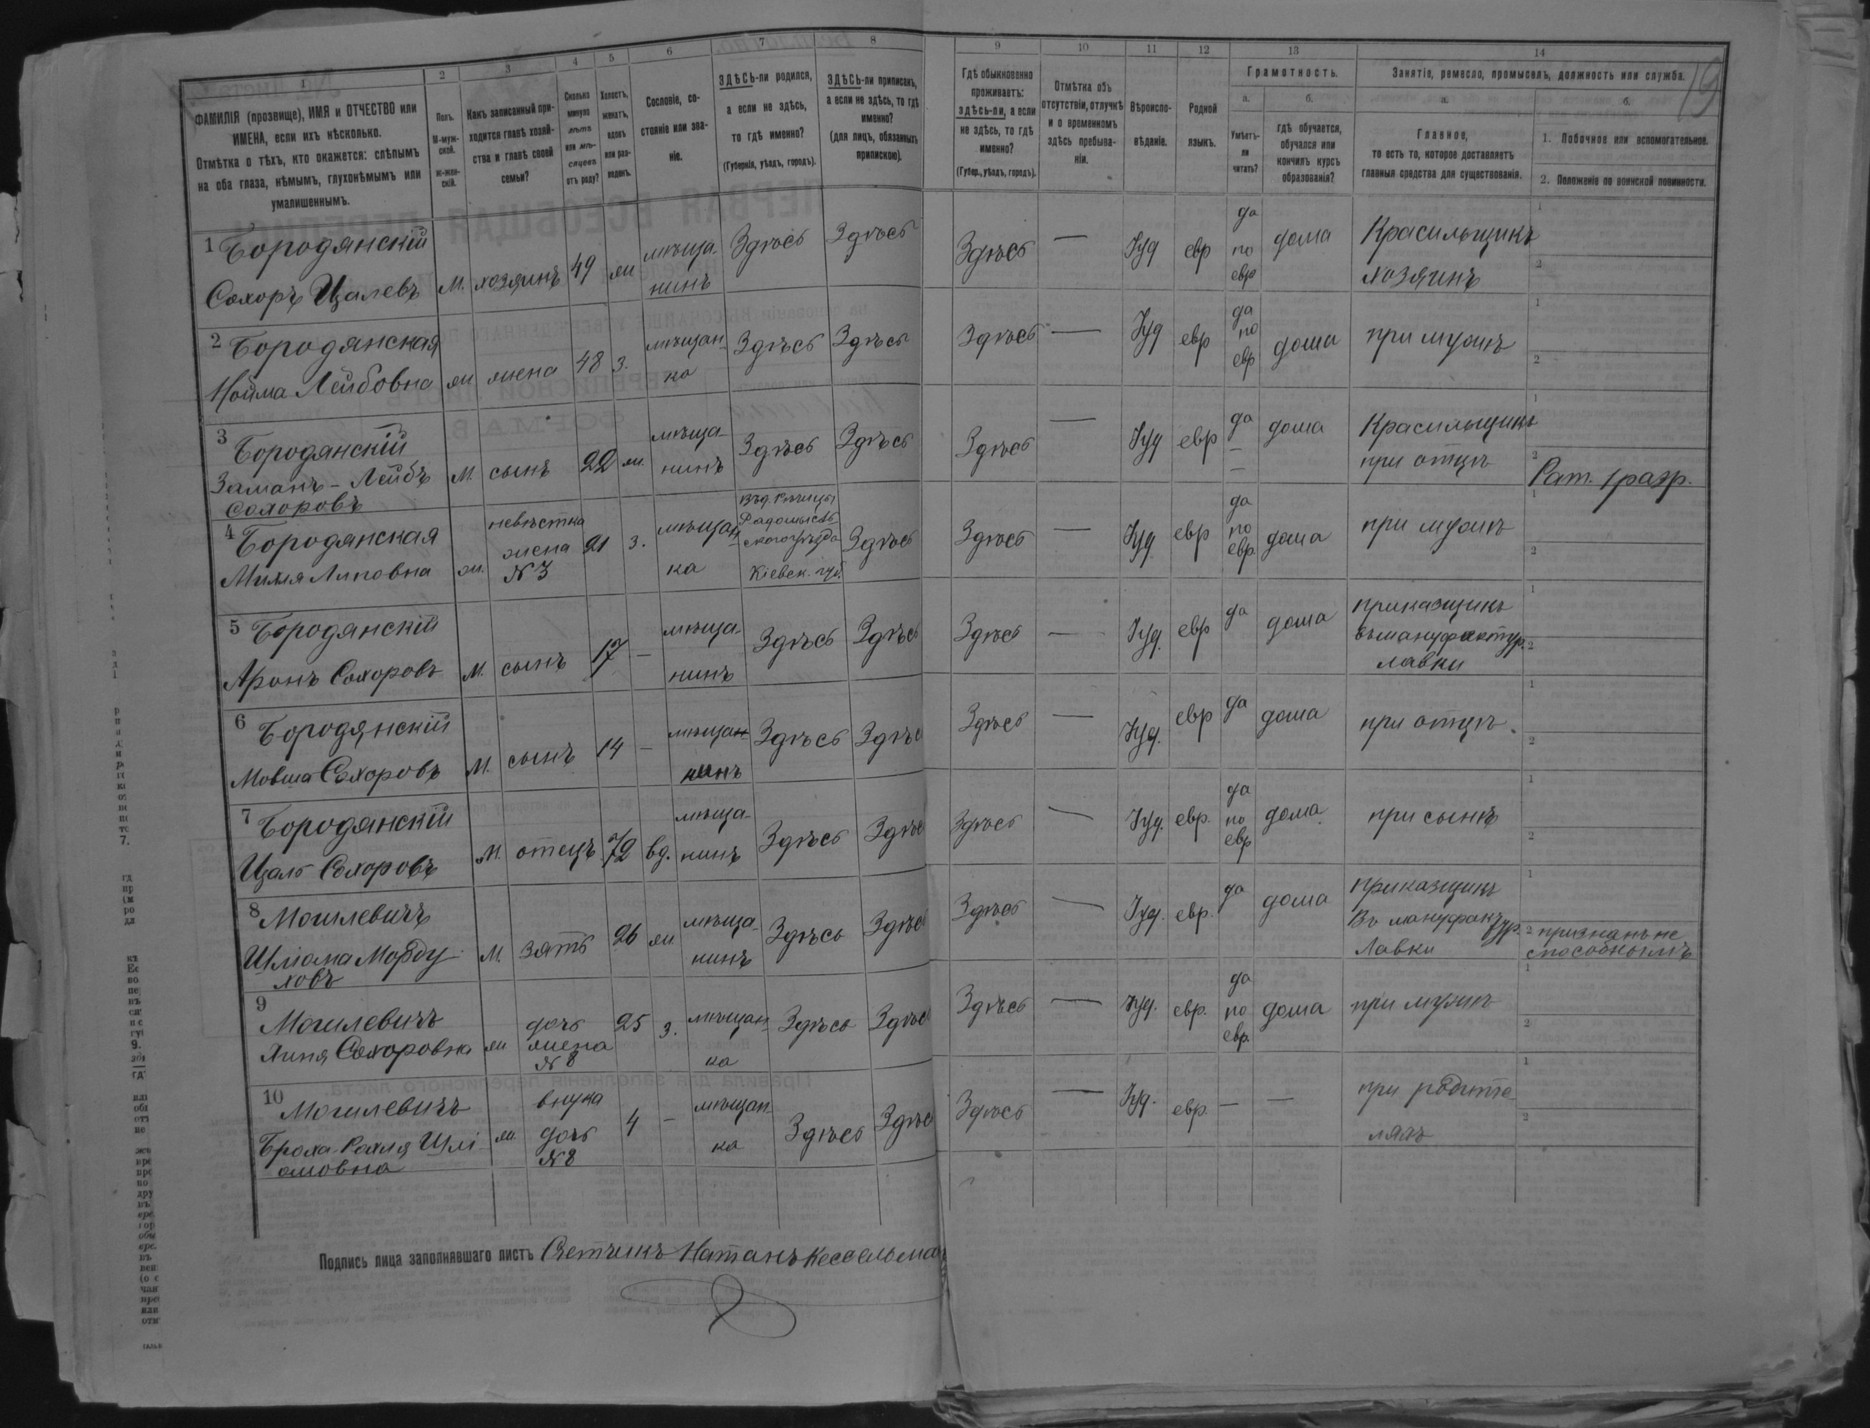 1 2 3 4 5 6 7 8 9 10 11 12 13 14
19
ФАМИЛІЯ (прозвище), ИМЯ и ОТЧЕСТВО или
ИМЕНА, если ихъ нѣсколько.
Отмѣтка о тѣхъ, кто окажется: слѣпымъ
на оба глаза, нѣмымъ, глухонѣмымъ или
умалишеннымъ.
Полъ.
М-муж-
ской.
Ж-жен-
скій.
Какъ записанный при-
ходится главѣ хозяй-
ства и главѣ своей
семьи?
Сколько
минуло
лѣтъ
или мѣ-
сяцевъ
отъ роду?
Холостъ,
женатъ,
вдовъ
или раз-
веденъ.
Сословіе, со-
стояніе или зва-
ніе.
ЗДѢСЬ-ли родился,
а если не здѣсь,
то гдѣ именно?
(Губернія, уѣздъ, городъ).
ЗДѢСЬ-ли приписанъ,
а если не здѣсь, то гдѣ
именно?
(для лицъ, обязанныхъ
припискою).
Гдѣ обыкновенно
проживаетъ:
здѣсь-ли, а если
не здѣсь, то гдѣ
именно?
(Губер., уѣздъ, городъ).
Отмѣтка объ
отсутствіи, отлучкѣ
и о временномъ
здѣсь пребыва-
ніи.
Вѣроиспо-
вѣданіе.
Родной
языкъ.
Грамотность.
а.
Умѣетъ-
ли
читать?
б.
гдѣ обучается,
обучался или
кончилъ курсъ
образованія?
Занятіе, ремесло, промыселъ, должность или служба.
а.
Главное,
то есть то, которое доставляетъ
главныя средства для существованія.
б.
1. Побочное или вспомогательное.
2. Положеніе по воинской повинности.
1 Бородянскій
Сохоръ Цалевъ
М. хозяинъ 49 ж
мѣща-
нинъ
Здѣсь Здѣсь Здѣсь — Іуд евр
да
по
евр
дома
Красильщикъ
хозяинъ
2 Бородянская
Нойма Лейбовна
ж жена 48 з.
мѣщан-
ка
Здѣсь Здѣсь Здѣсь — Іуд евр
да
по
евр
дома
при мужѣ
3 Бородянскій
Заманъ-Лейбъ
Сохоровъ
М. сынъ 22 ж.
мѣща-
нинъ
Здѣсь Здѣсь Здѣсь — Іуд евр
да
—
—
дома
Красильщикъ
при отцѣ
Рат. 1 разр.
4 Бородянская
Миля Липовна
ж.
невѣстка
жена
№ 3
21 з.
мѣщан-
ка
Радомысль-
скаго уѣзда
Кіевск. губ.
Здѣсь Здѣсь — Іуд евр
да
по
евр
дома
при мужѣ
5 Бородянскій
Аронъ Сохоровъ
М. сынъ 17 —
мѣща-
нинъ
Здѣсь Здѣсь Здѣсь — Іуд. евр да дома
приказщикъ
въ мануфактур.
лавки
6 Бородянскій
Мовша Сохоровъ
М. сынъ 14 —
мѣща-
нинъ
Здѣсь Здѣсь Здѣсь — Іуд. евр да дома
при отцѣ.
7 Бородянскій
Цаль Сохоровъ
М. отецъ 72 вд.
мѣща-
нинъ
Здѣсь Здѣсь Здѣсь — Іуд. евр.
да
по
евр
дома.
при сынѣ
8 Могилевичъ
Шліома Морду
ховъ
М. зять 26 ж
мѣща-
нинъ
Здѣсь Здѣсь Здѣсь — Іуд. евр. да дома
приказщикъ
въ мануфактур.
Лавки
признанъ не
способнымъ
9
Могилевичъ
Хиня Сохоровна
ж
дочь
жена
№ 8
25 з.
мѣщан-
ка
Здѣсь Здѣсь Здѣсь — Іуд. евр.
да
по
евр.
дома
при мужѣ
10
Могилевичъ
Броха Рохля Шлі
омовна
ж.
внука
дочь
№ 8
4 —
мѣщан-
ка
Здѣсь Здѣсь Здѣсь — Іуд. евр. — —
при родите-
ляхъ
Подпись лица заполнявшаго листъ Счетчикъ Натанъ Кессельман